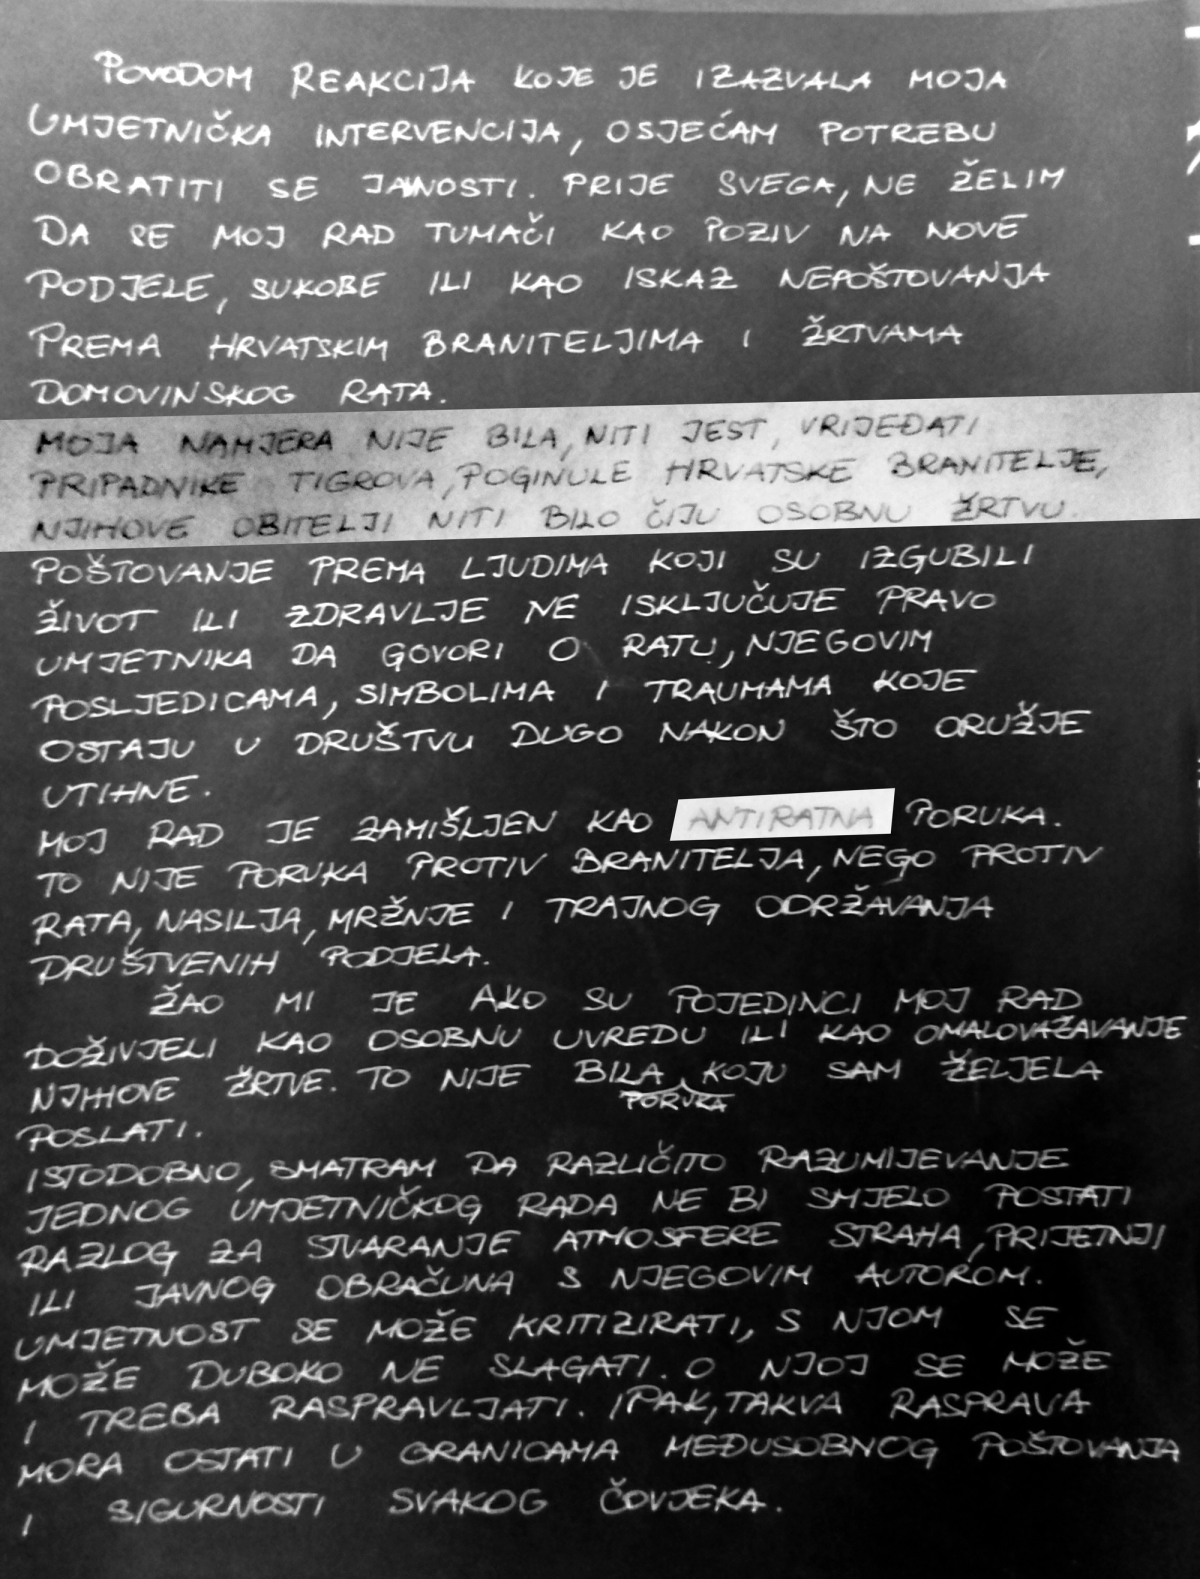 POVODOM REAKCIJA KOJE JE IZAZVALA MOJA
UMJETNIČKA INTERVENCIJA, OSJEĆAM POTREBU
OBRATITI SE JAVNOSTI. PRIJE SVEGA, NE ŽELIM
DA SE MOJ RAD TUMAČI KAO POZIV NA NOVE
PODJELE, SUKOBE ILI KAO ISKAZ NEPOŠTOVANJA
PREMA HRVATSKIM BRANITELJIMA I ŽRTVAMA
DOMOVINSKOG RATA.
MOJA NAMJERA NIJE BILA, NITI JEST, VRIJEĐATI
PRIPADNIKE TIGROVA, POGINULE HRVATSKE BRANITELJE,
NJIHOVE OBITELJI NITI BILO ČIJU OSOBNU ŽRTVU.
POŠTOVANJE PREMA LJUDIMA KOJI SU IZGUBILI
ŽIVOT ILI ZDRAVLJE NE ISKLJUČUJE PRAVO
UMJETNIKA DA GOVORI O RATU, NJEGOVIM
POSLJEDICAMA, SIMBOLIMA I TRAUMAMA KOJE
OSTAJU U DRUŠTVU DUGO NAKON ŠTO ORUŽJE
UTIHNE.
MOJ RAD JE ZAMIŠLJEN KAO ANTIRATNA PORUKA.
TO NIJE PORUKA PROTIV BRANITELJA, NEGO PROTIV
RATA, NASILJA, MRŽNJE I TRAJNOG ODRŽAVANJA
DRUŠTVENIH PODJELA.
ŽAO MI JE AKO SU POJEDINCI MOJ RAD
DOŽIVJELI KAO OSOBNU UVREDU ILI KAO OMALOVAŽAVANJE
NJIHOVE ŽRTVE. TO NIJE BILA KOJU SAM ŽELJELA
PORUKA
POSLATI.
ISTODOBNO, SMATRAM DA RAZLIČITO RAZUMIJEVANJE
JEDNOG UMJETNIČKOG RADA NE BI SMJELO POSTATI
RAZLOG ZA STVARANJE ATMOSFERE STRAHA, PRIJETNJI
ILI JAVNOG OBRAČUNA S NJEGOVIM AUTOROM.
UMJETNOST SE MOŽE KRITIZIRATI, S NJOM SE
MOŽE DUBOKO NE SLAGATI. O NJOJ SE MOŽE
I TREBA RASPRAVLJATI. IPAK, TAKVA RASPRAVA
MORA OSTATI U GRANICAMA MEĐUSOBNOG POŠTOVANJA
I SIGURNOSTI SVAKOG ČOVJEKA.